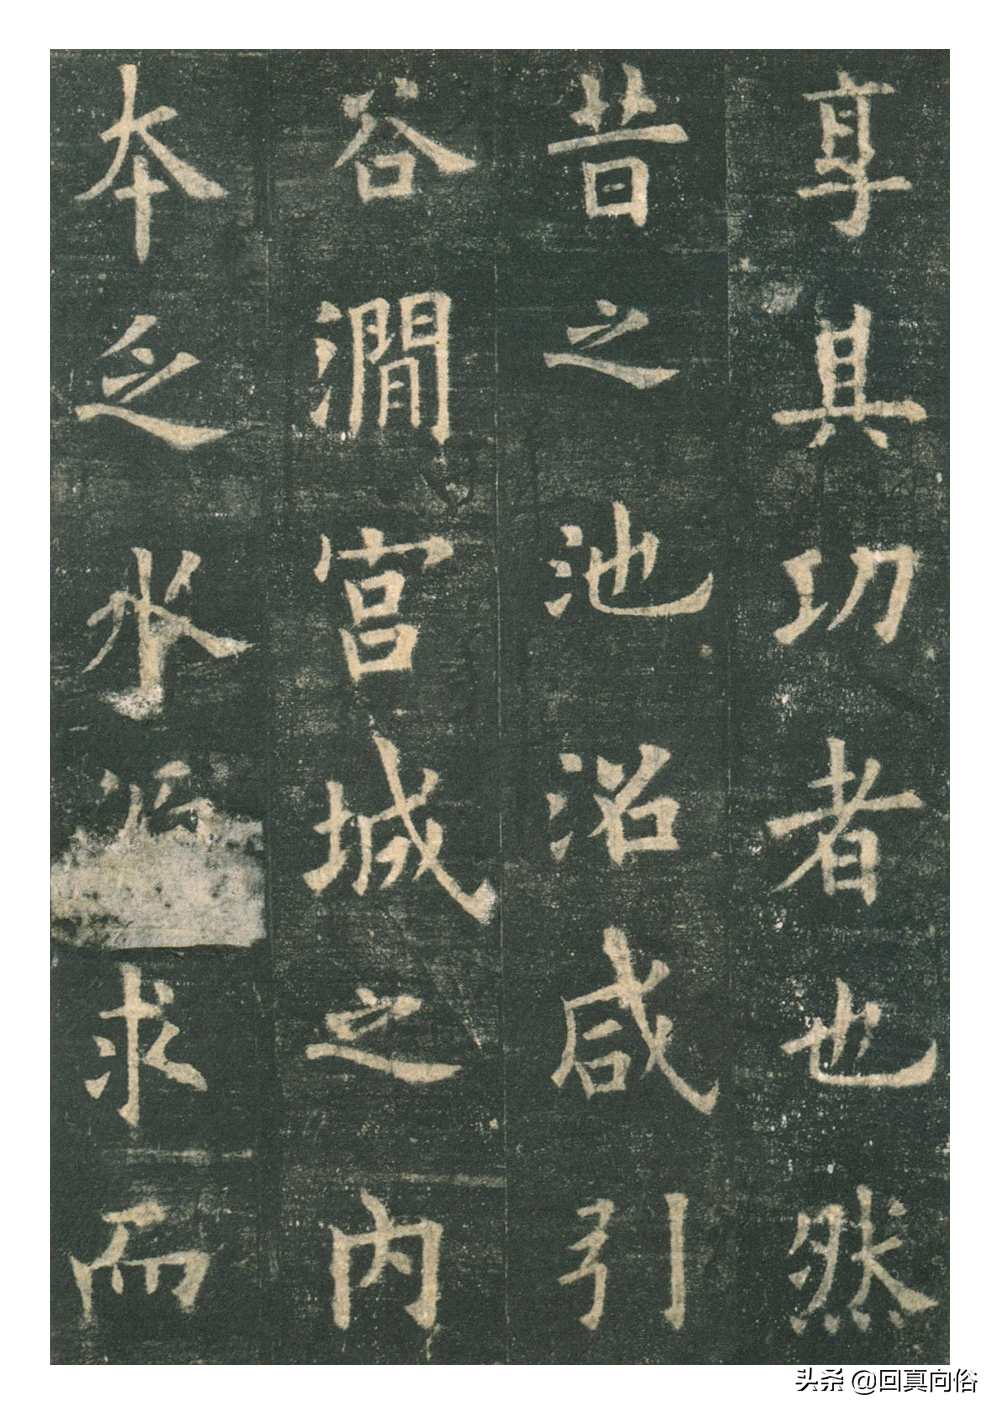 享其功者也然
昔之池沼咸引
谷澗宮城之内
本乏水源求而
头条 @回真向俗